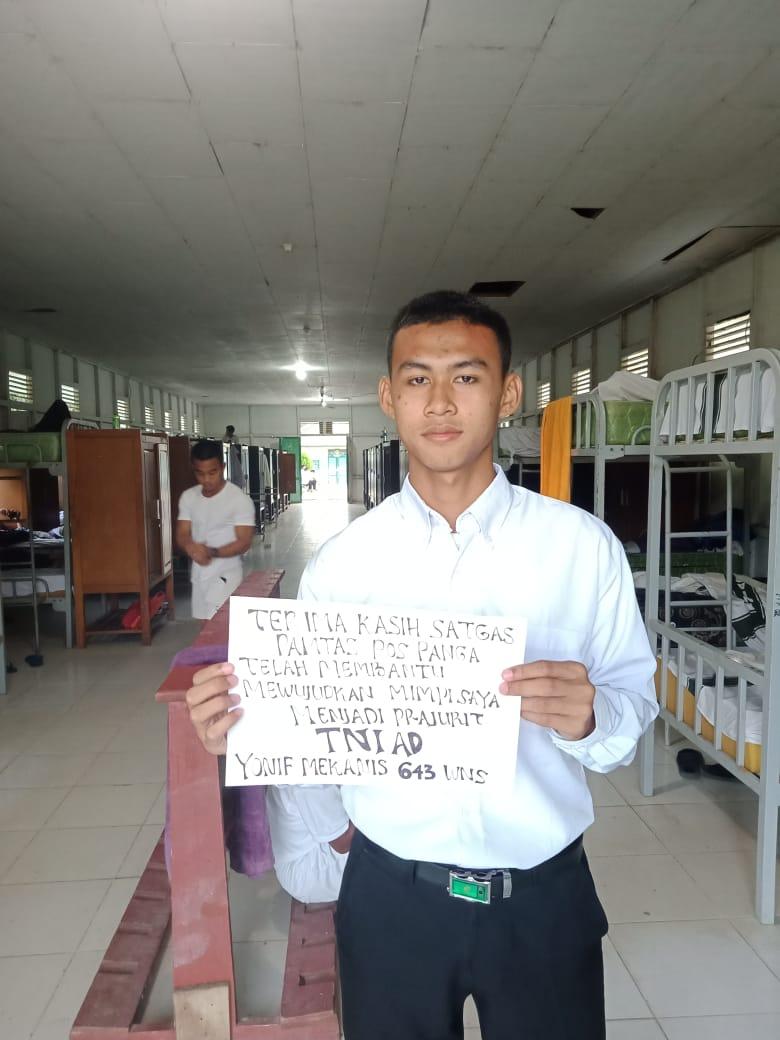 TERIMA KASIH SATGAS
PAMTAS POS PANGA
TELAH MEMBANTU
MEWUJUDKAN MIMPI SAYA
MENJADI PRAJURIT
TNI AD
YONIF MEKANIS 643 WNS